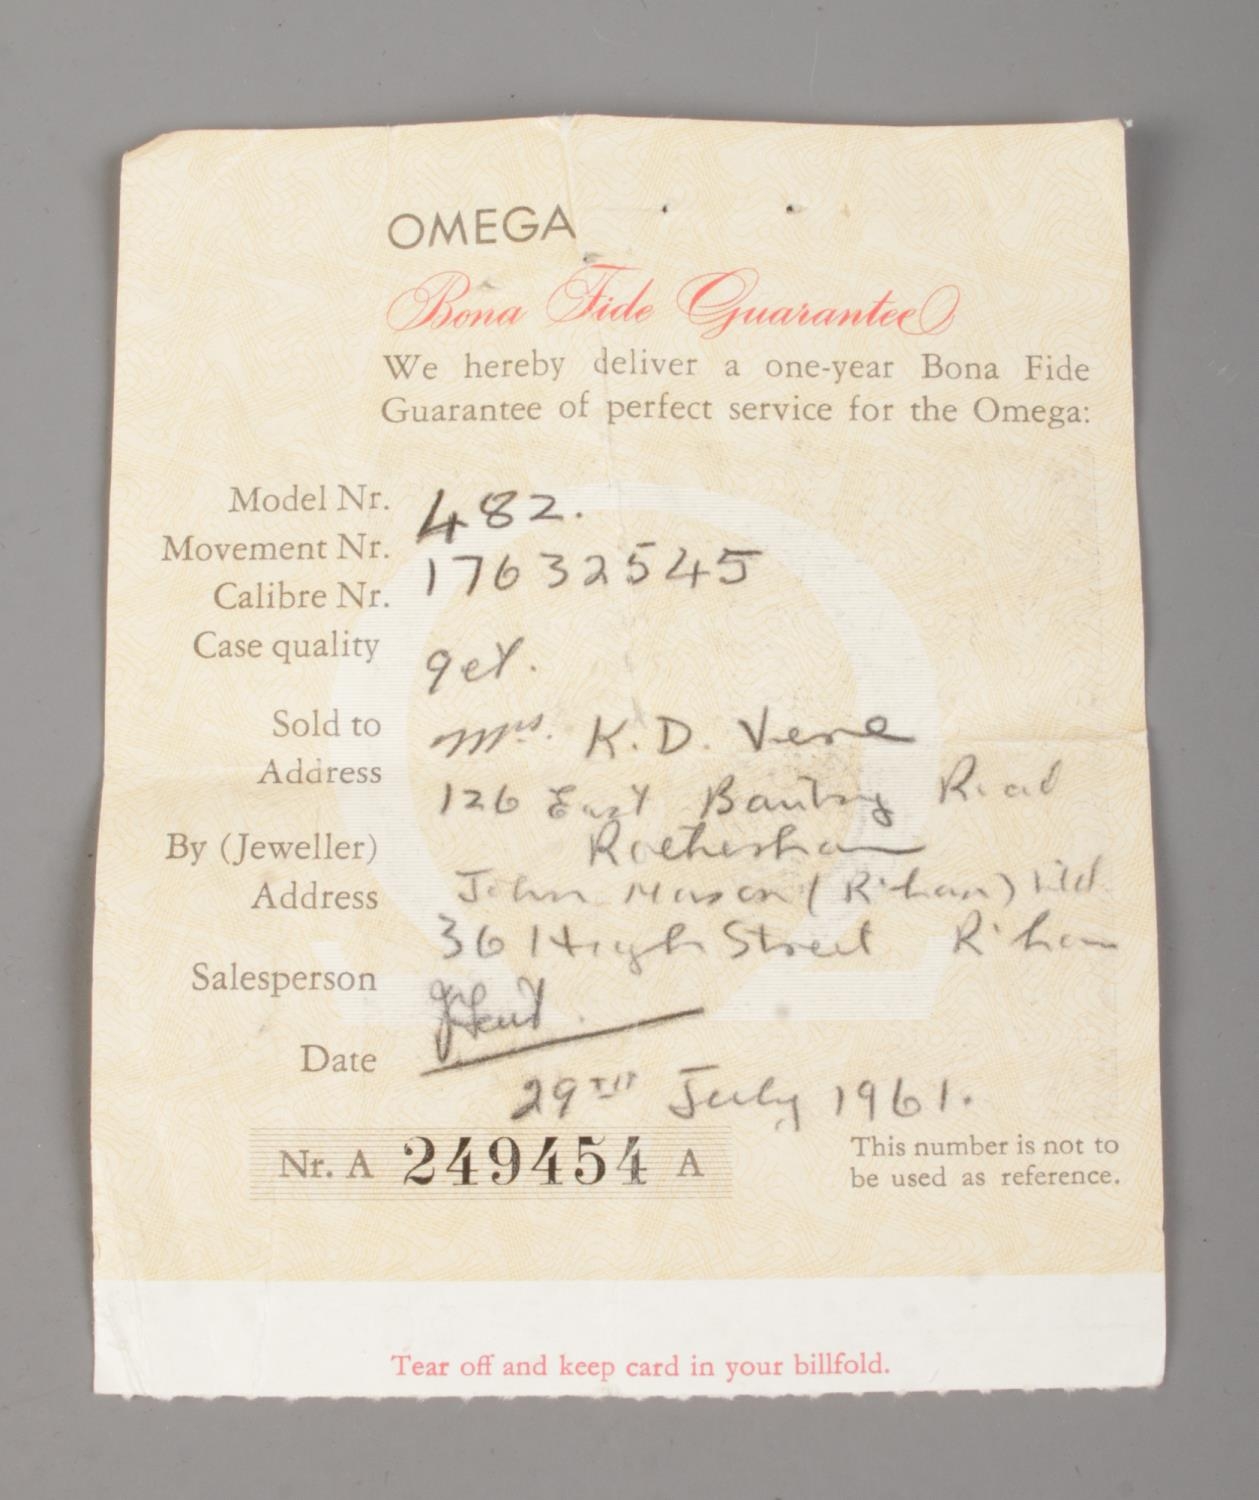 OMEGA
Bona Fide Guarantee
We hereby deliver a one-year Bona Fide
Guarantee of perfect service for the Omega:
Model Nr. 482.
Movement Nr. 17632545
Calibre Nr.
Case quality 9ct.
Sold to Mrs. K. D. Vere
Address 126 East Bawtry Road
Rotherham
By (Jeweller) John Mason (R'ham) Ltd
Address 36 High Street R'ham
Salesperson
Date 29TH July 1961.
Nr. A 249454 A
This number is not to
be used as reference.
Tear off and keep card in your billfold.